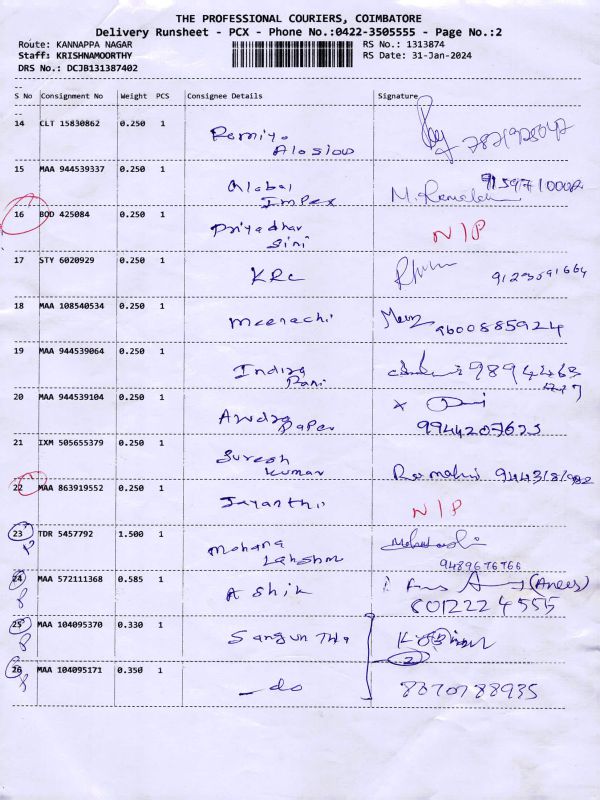 THE PROFESSIONAL COURIERS, COIMBATORE
Delivery Runsheet - PCX - Phone No.:0422-3505555 - Page No.:2
Route: KANNAPPA NAGAR RS No.: 1313874
Staff: KRISHNAMOORTHY RS Date: 31-Jan-2024
DRS No.: DCJB131387402
S No Consignment No Weight PCS Consignee Details Signature
14 CLT 15830862 0.250 1
15 MAA 944539337 0.250 1 Global
Impex
16 BOD 425084 0.250 1 Priyadhar
sini N/P
17 STY 6020929 0.250 1 KRC
18 MAA 108540534 0.250 1 meenachi 9600885924
19 MAA 944539064 0.250 1 Indira
Rani 9894463
20 MAA 944539104 0.250 1 X
Paper 9944207623
21 IXM 505655379 0.250 1 Suresh
Kumar
22 MAA 863919552 0.250 1 Jayanthi N/P
23 TDR 5457792 1.500 1 Mohana
Lakshmi 9489676766
24 MAA 572111368 0.585 1 Ashik (Anees)
8012224555
25 MAA 104095370 0.330 1
2
26 MAA 104095171 0.350 1 do 8070788935